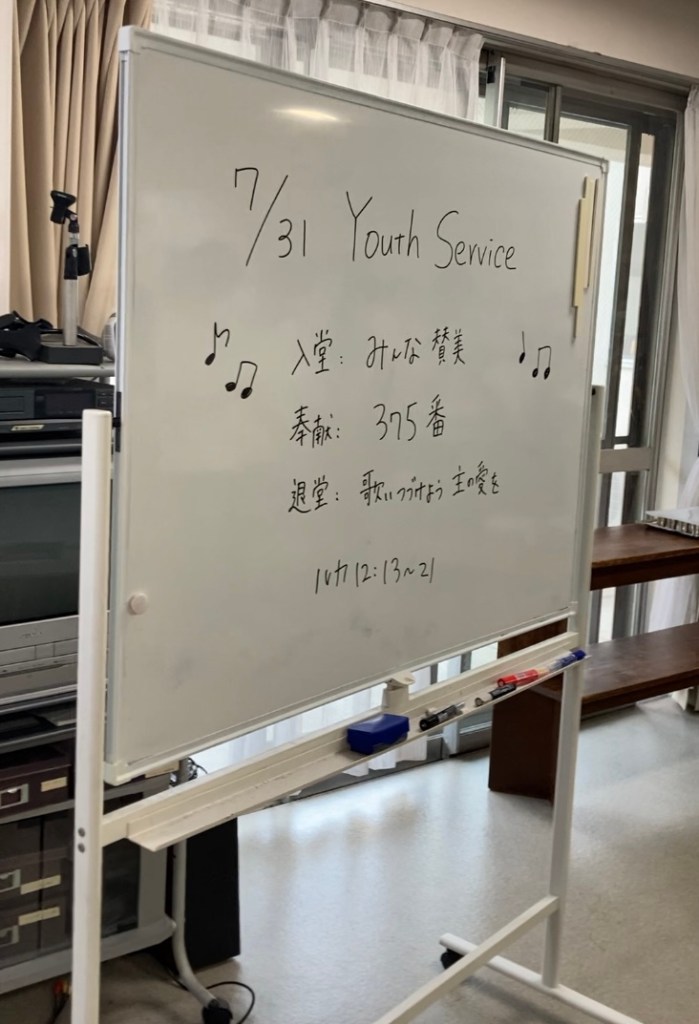 7/31 Youth Service
入堂: みんな賛美
奉献: 375番
退堂: 歌いつづけよう 主の愛を
ルカ12:13~21